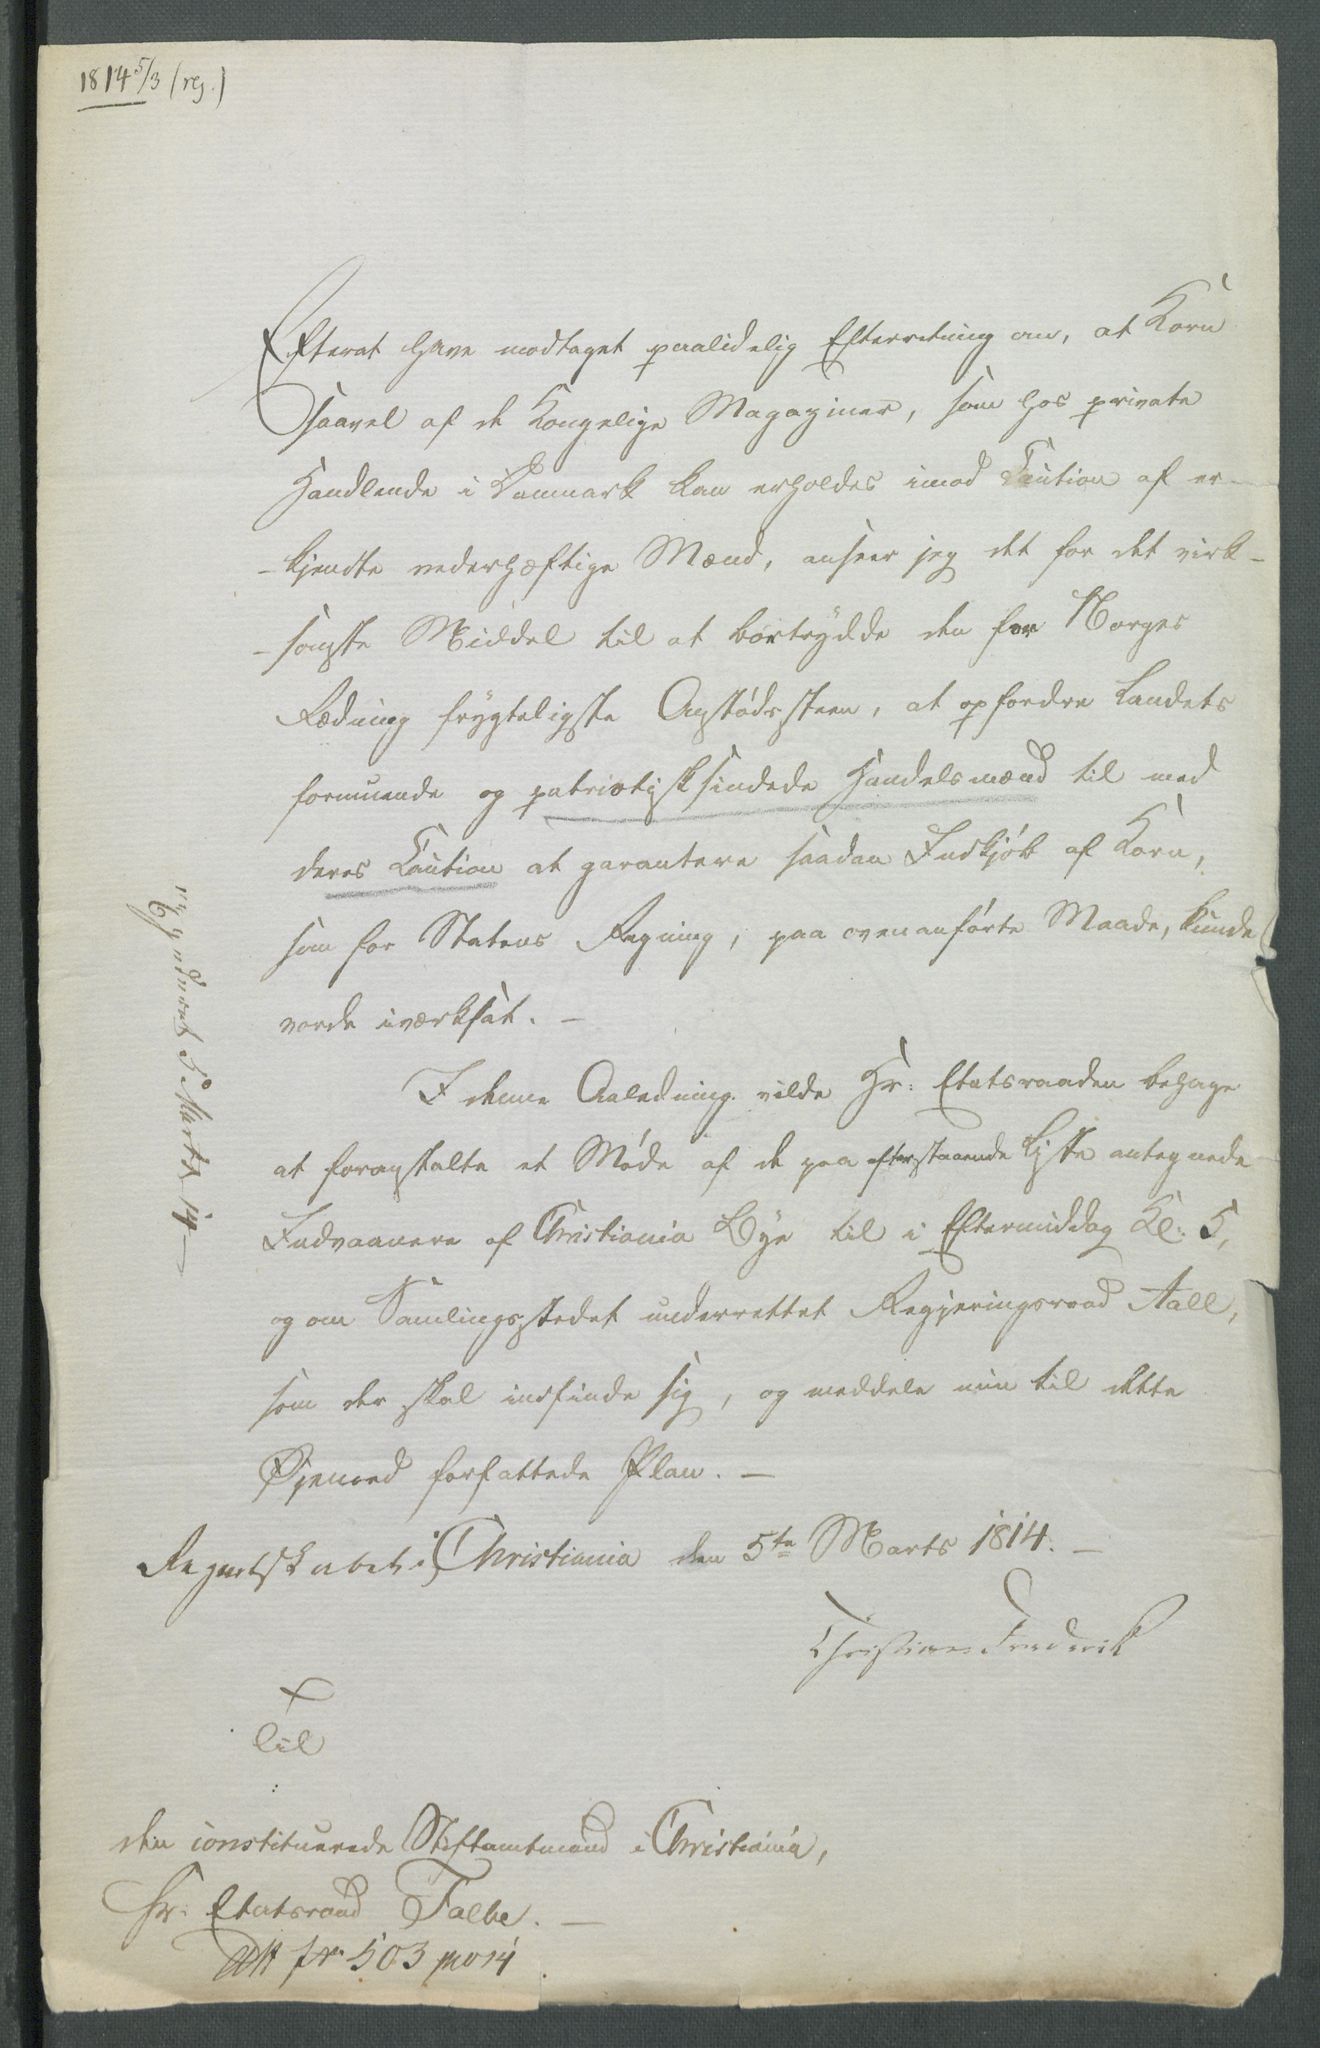 1814 5/3 (reg.)
Efterat have modtaget paalidelig Efterretning om, at Korn
saavel af de Kongelige Magaziner, som hos private
Handlende i Danmark kan erholdes imod Caution af er-
-kjendte vederhæftige Mænd, anseer jeg det for det virk-
-somste Middel til at bortrydde den for Norges
Redning frygteligste Anstødssteen, at opfordre Landets
formuende og patriotisksindede Handelsmænd til med
deres Caution at garantere saadan Indkjøb af Korn,
som for Statens Regning, paa ovenanførte Maade, kunde
vorde iværksat. –
I denne Anledning vilde Hr: Etatsraaden behage
at foranstalte et Møde af de paa efterstaaende Liste antegnede
Indvaanere af Christiania Bye til i Eftermiddag Kl: 5,
og om Samlingsstedet underrettet Regjeringsraad Aall,
som der skal indfinde sig, og meddele min til dette
Øjemed forfattede Plan. –
Regentskabet i Christiania den 5te Marts 1814. –
Christian Frederik
Til
den constituerede Stiftamtmand i Christiania,
Hr: Etatsraad Falbe. –
503
5 Marts 14